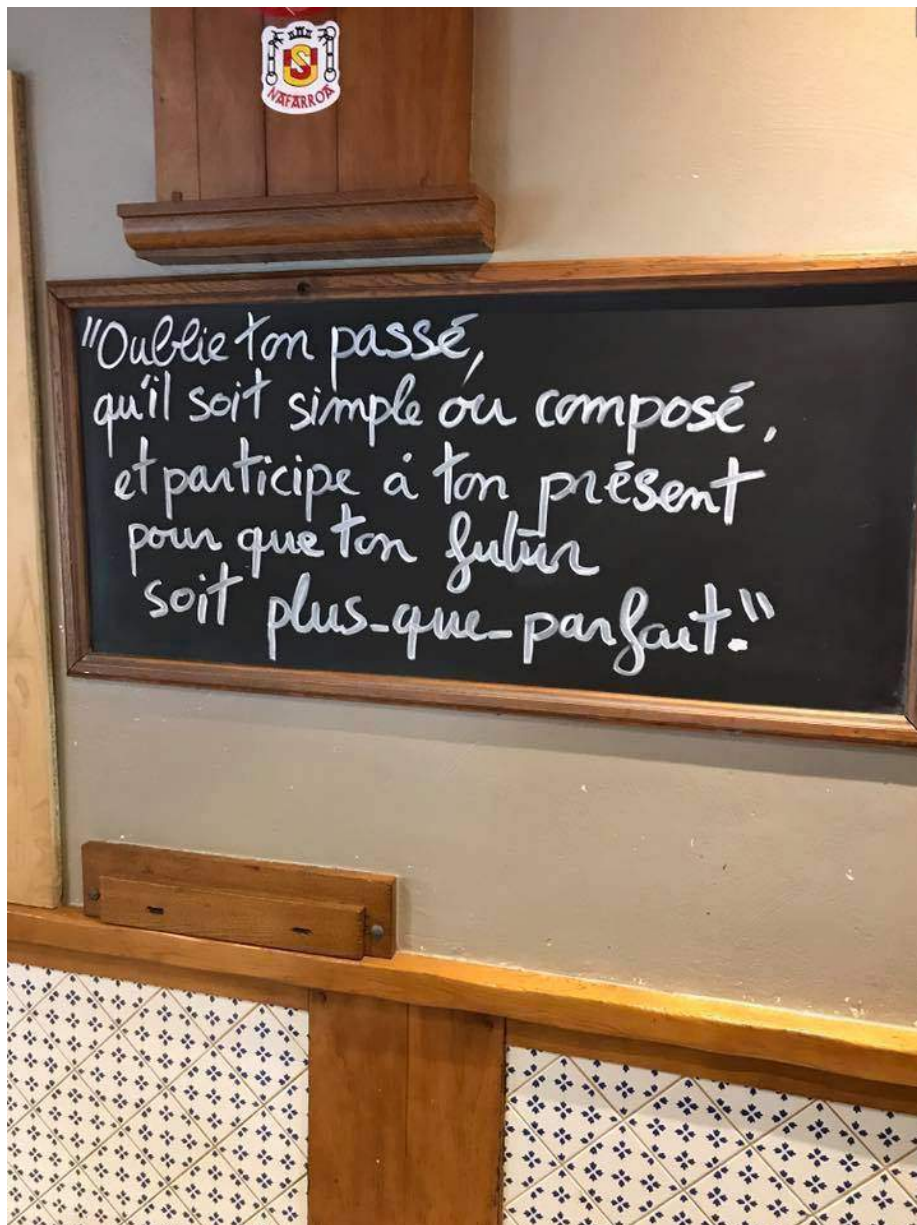 S
NAFARROA
"Oublie ton passé,
qu'il soit simple ou composé,
et participe à ton présent
pour que ton futur
soit plus-que-parfait."